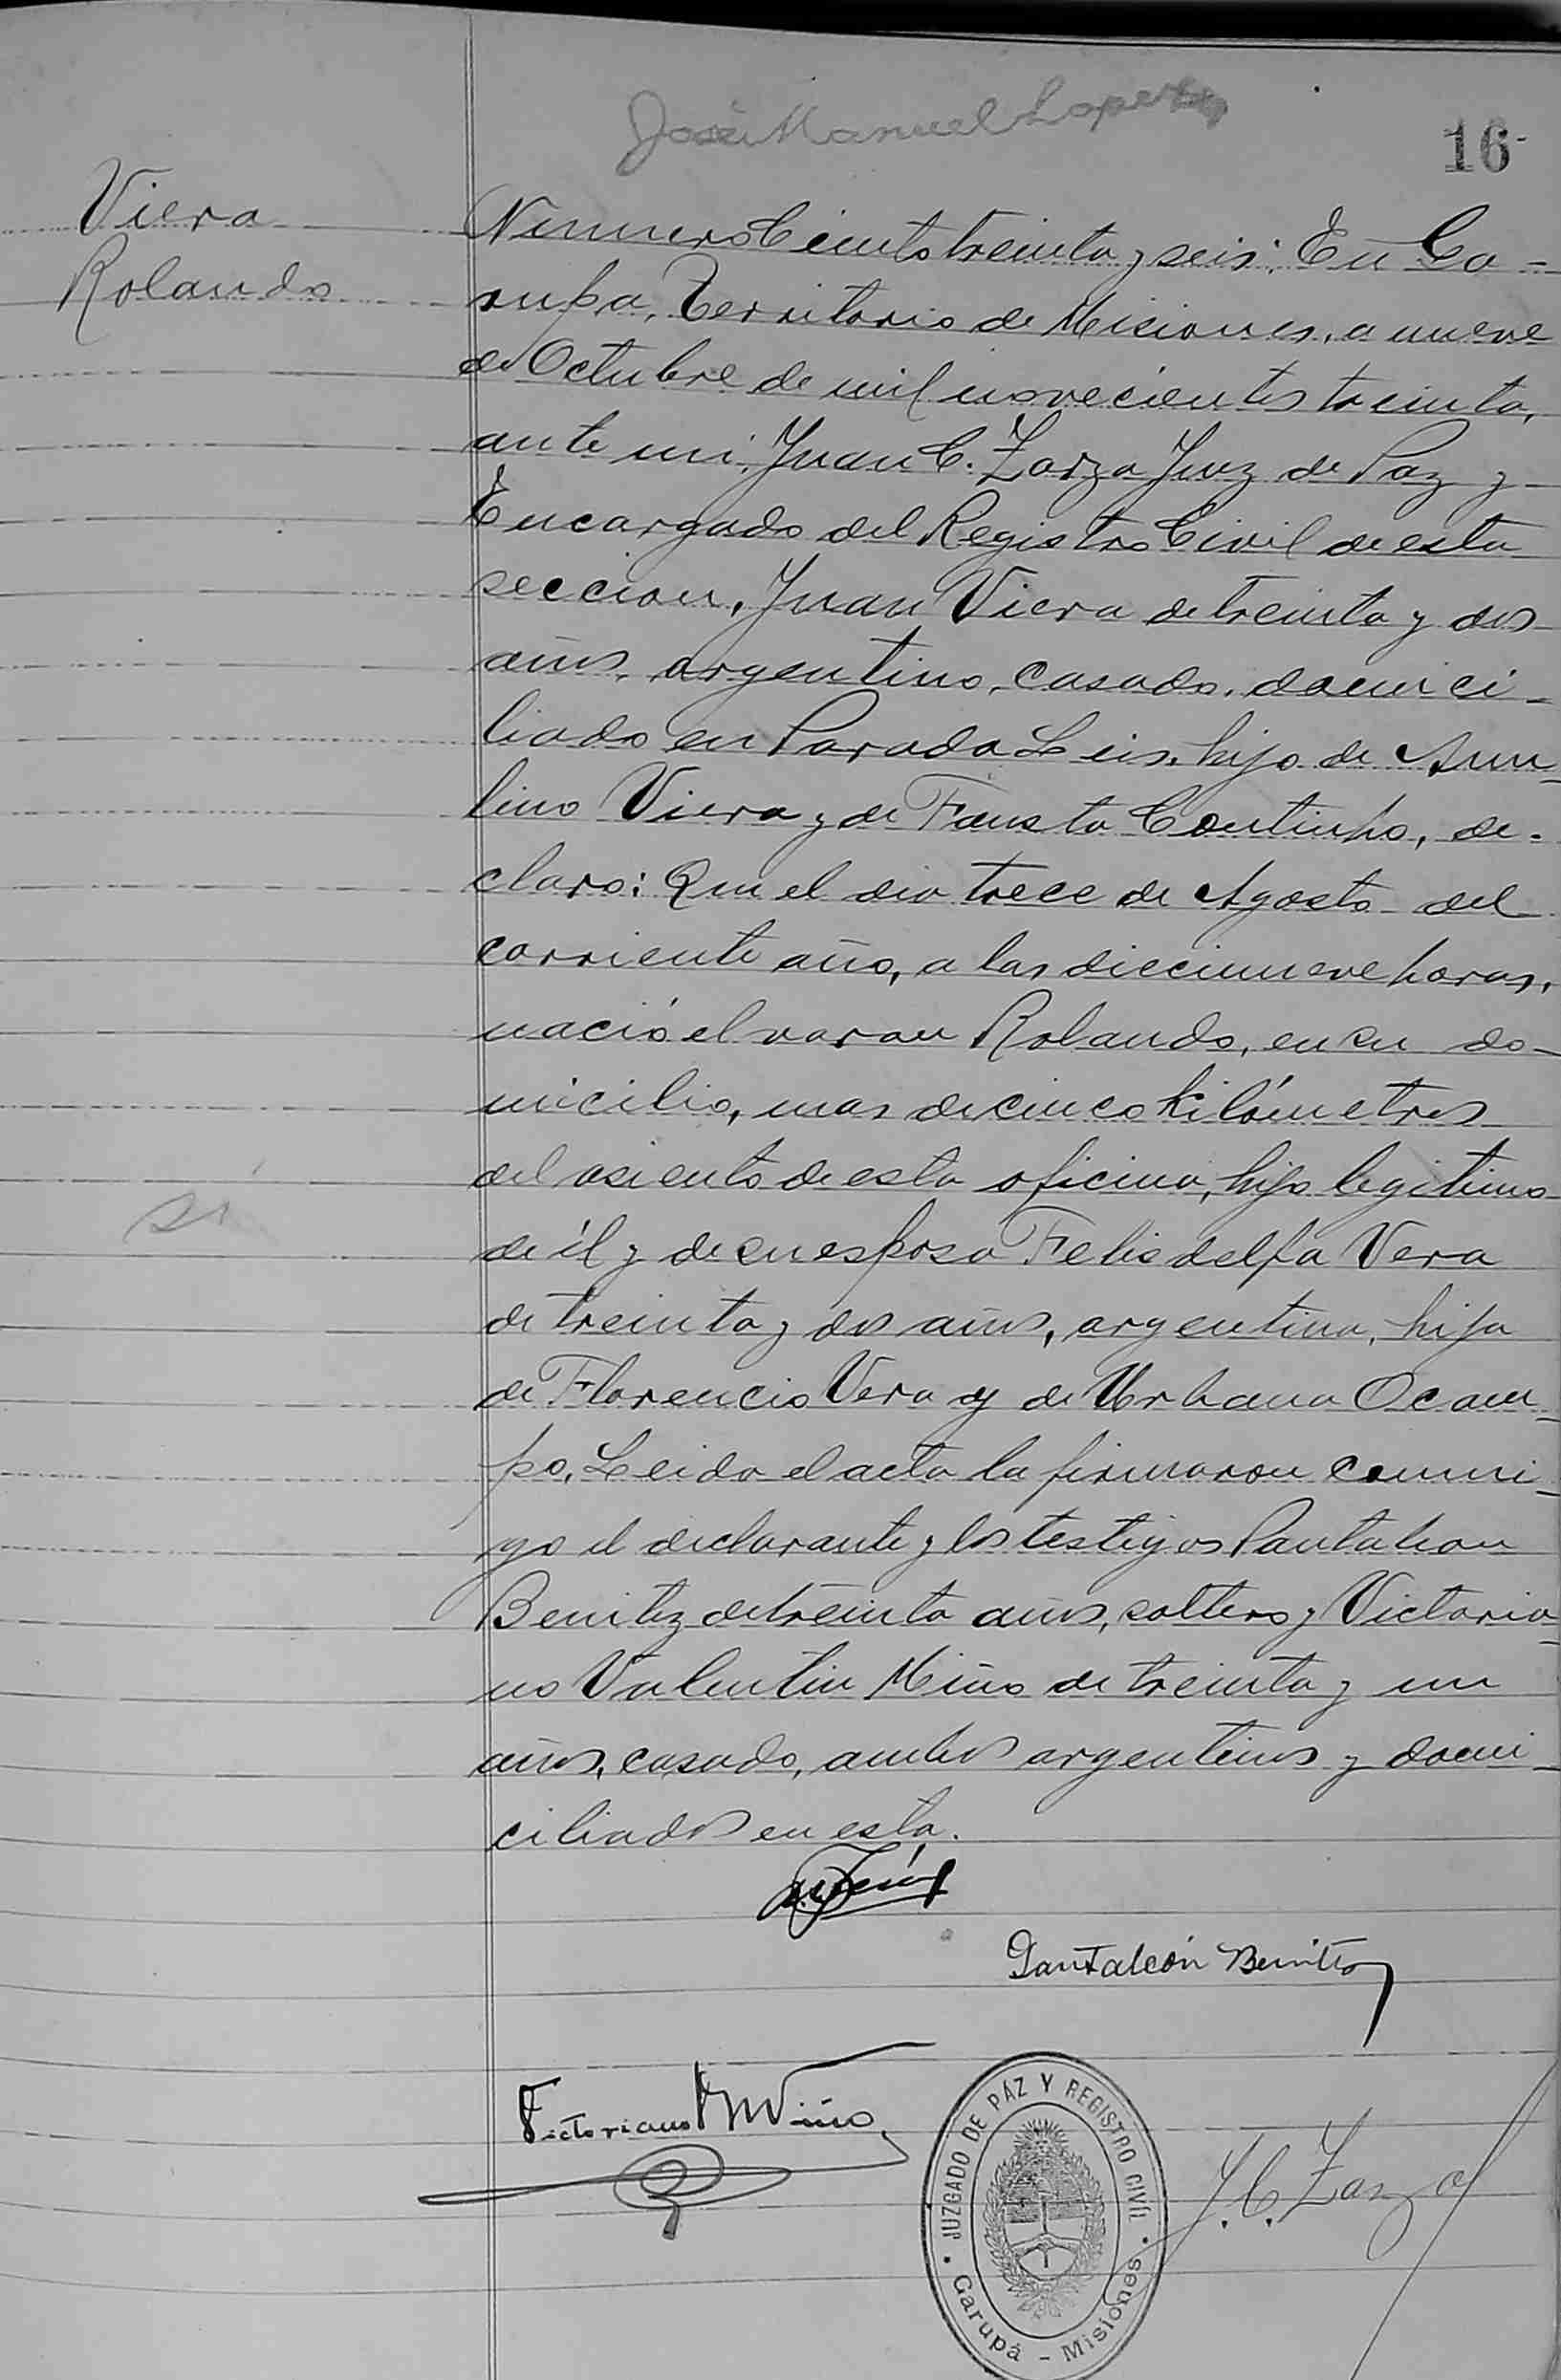 José Manuel Lopez
16
Viera
Rolando
Numero Ciento treinta y seis: En Ga-
rupa, Territorio de Misiones, a nueve
de Octubre de mil novecientos treinta,
ante mi, Juan C. Zarza Juez de Paz y
Encargado del Registro Civil de esta
seccion, Juan Viera de treinta y dos
años, argentino, casado, domici-
liado en Parada Leis, hijo de
lino Viera y de Fausta Coutinho, de-
claro: Que el dia trece de Agosto del
corriente año, a las diecinueve horas,
nació el varon Rolando, en su do-
micilio, mas de cinco kilómetros
del asiento de esta oficina, hijo legitimo
de él y de su esposa Felisdelfa Vera
de treinta y dos años, argentina, hija
de Florencio Vera y de Urbana Ocam-
po. Leida el acta la firmaron conmi-
go el declarante y los testigos Pantaleon
Benitez de treinta años, soltero y Victoria-
no Valentin Miño de treinta y un
años, casado, ambos argentinos y domi-
ciliados en esta.
si
Pantaleón Benitez
Victoriano V Miño
J. C. Zarza
JUZGADO DE PAZ Y REGISTRO CIVIL
Garupá - Misiones